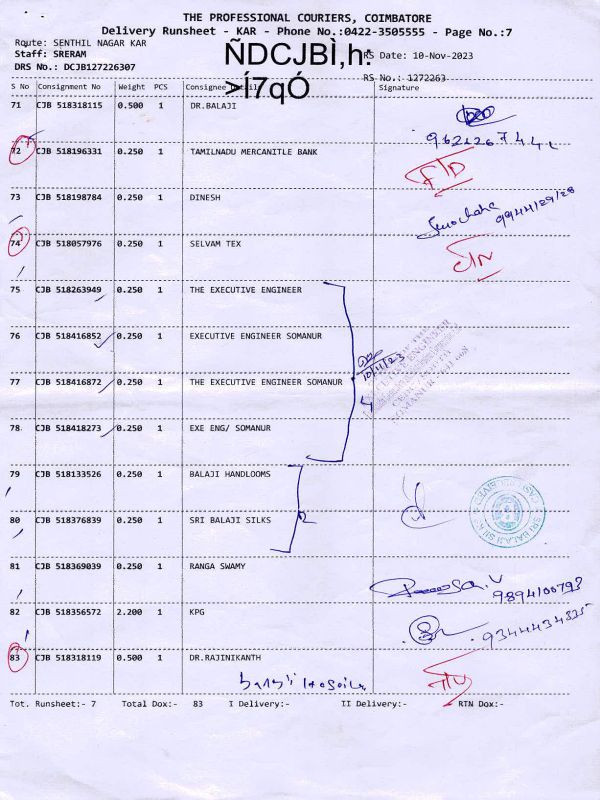 THE PROFESSIONAL COURIERS, COIMBATORE
Delivery Runsheet - KAR - Phone No.:0422-3505555 - Page No.:7
Route: SENTHIL NAGAR KAR
Staff: SRERAM
ÑDCJBÌ,h:
RS Date: 10-Nov-2023
DRS No.: DCJB127226307
>Í7qÓ
RS No.: 1272263
S No Consignment No Weight PCS Consignee Details Signature
71 CJB 518318115 0.500 1 DR.BALAJI
72 CJB 518196331 0.250 1 TAMILNADU MERCANITLE BANK
73 CJB 518198784 0.250 1 DINESH
74 CJB 518057976 0.250 1 SELVAM TEX
75 CJB 518263949 0.250 1 THE EXECUTIVE ENGINEER
76 CJB 518416852 0.250 1 EXECUTIVE ENGINEER SOMANUR
10/11/23
77 CJB 518416872 0.250 1 THE EXECUTIVE ENGINEER SOMANUR
78 CJB 518418273 0.250 1 EXE ENG/ SOMANUR
79 CJB 518133526 0.250 1 BALAJI HANDLOOMS
80 CJB 518376839 0.250 1 SRI BALAJI SILKS
81 CJB 518369039 0.250 1 RANGA SWAMY
9894100793
82 CJB 518356572 2.200 1 KPG
83 CJB 518318119 0.500 1 DR.RAJINIKANTH
Tot. Runsheet:- 7 Total Dox:- 83 I Delivery:- II Delivery:- RTN Dox:-